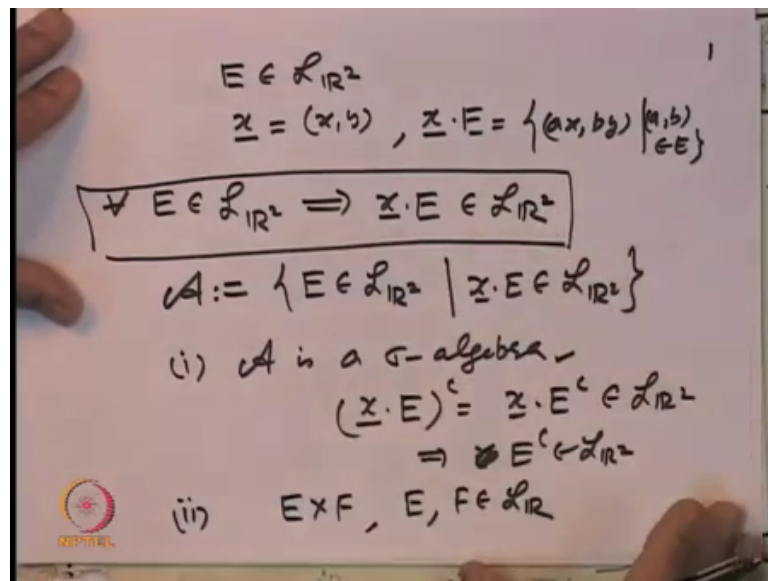 1
E ∈ ℒ_ℝ²
x̲ = (x,y) , x̲·E = {(ax, by) | (a,b) ∈ E}
∀ E ∈ ℒ_ℝ² ⟹ x̲·E ∈ ℒ_ℝ²
𝒜 := {E ∈ ℒ_ℝ² | x̲·E ∈ ℒ_ℝ²}
(i) 𝒜 is a σ-algebra
(x̲·E)ᶜ = x̲·Eᶜ ∈ ℒ_ℝ²
⟹ Eᶜ ∈ ℒ_ℝ²
(ii) E×F , E, F ∈ ℒ_ℝ
NPTEL